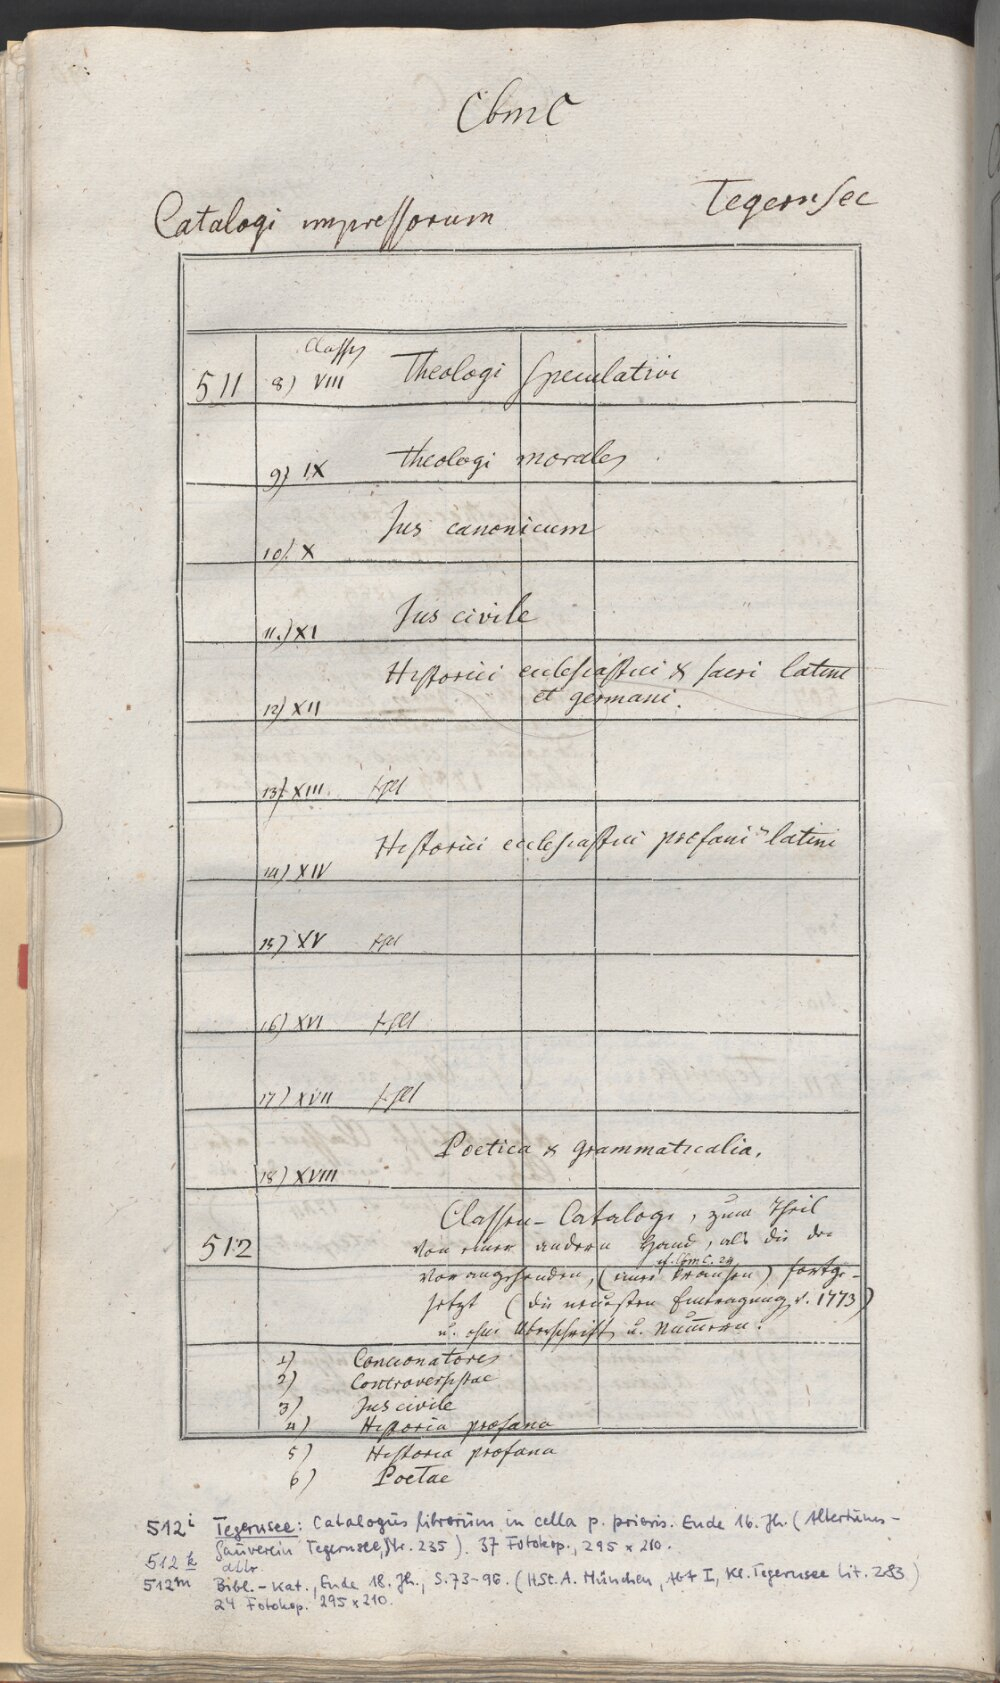 CbmC
Catalogi impressorum Tegernsee
511 Classis
8) VIII Theologi speculativi
9) IX Theologi morales
10) X Jus canonicum
11.) XI Jus civile
12) XII Historici ecclesiastici & sacri latini
et germani.
13) XIII.
14) XIV Historici ecclesiastici profani latini
15) XV
16) XVI
17) XVII
18) XVIII Poetica & grammaticalia.
512 Classen-Catalogi, zum Theil
von einer andern Hand, als die da-
cf. CbmC. 24
vorangehenden, (eines Kransen) fortge-
setzt (die neuesten Eintragung v. 1773)
u. ohne Überschrift u. Numern:
1) Concionatores
2) Controversistae
3) Jus civile
4) Historia profana
5) Historia profana
6) Poetae
512i Tegernsee: Catalogus librorum in cella p. prioris. Ende 16. Jh. (Altertums-
gauverein Tegernsee, Nr. 235). 37 Fotokop., 295 x 210.
512k dttr
512m Bibl.-Kat., Ende 18. Jh., S. 73-96. (HSt.A. München, Abt I, Kl. Tegernsee Lit. 283)
24 Fotokop. 295 x 210.